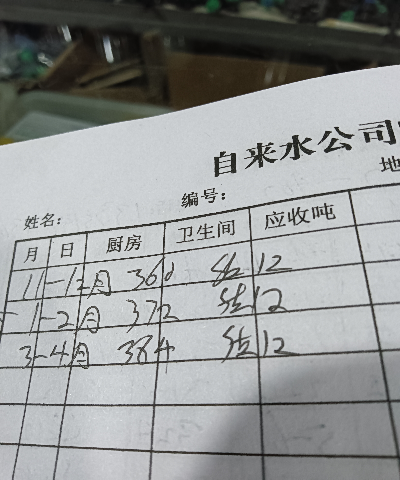 自来水公司
地
姓名: 编号:
月 日 厨房 卫生间 应收吨
11-12月 360 12
1-2月 372 12
3-4月 384 12